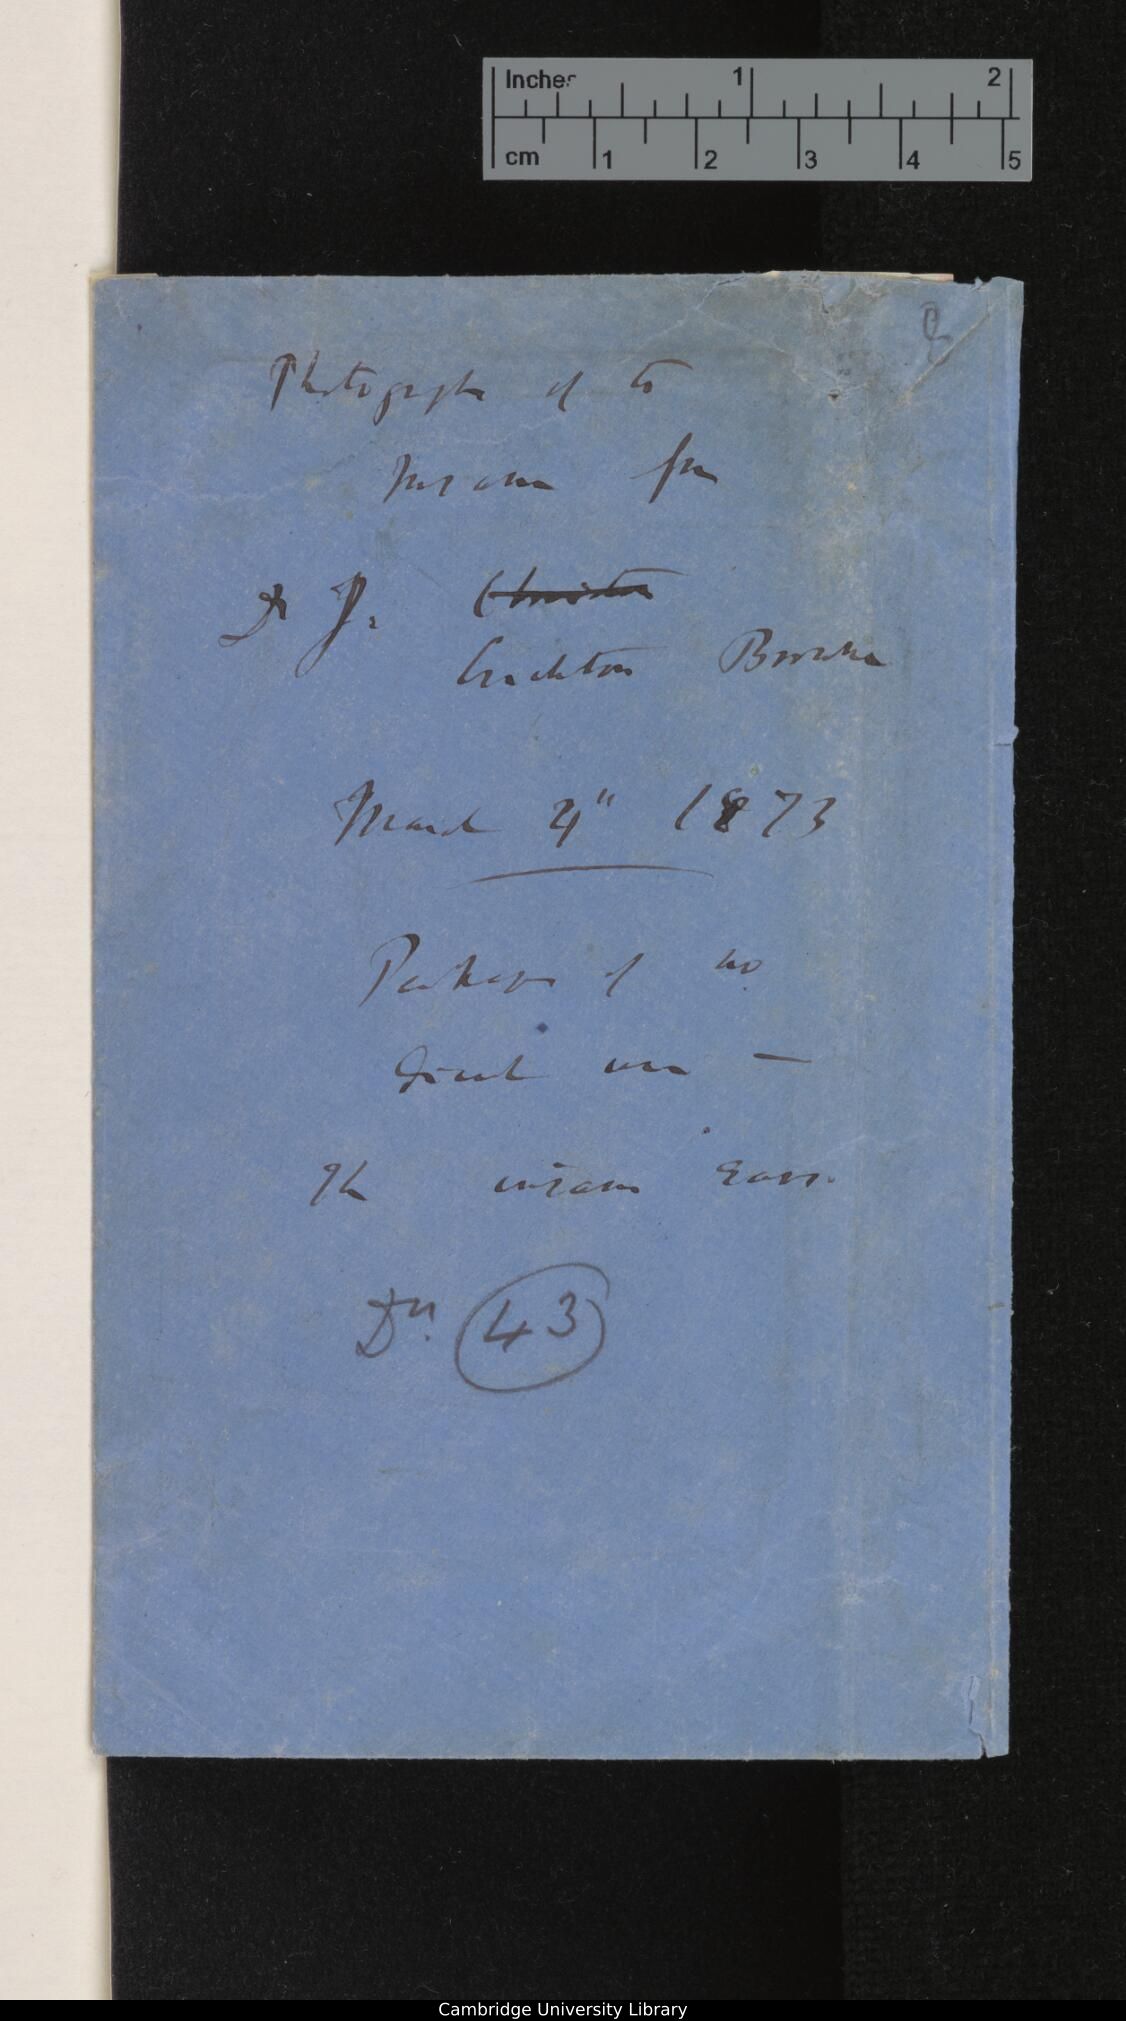 Inches 1 2
cm 1 2 3 4 5
Photographs of the
Insane from
Dr J.
Crichton Browne
March 4" 1873
Perhaps of no
direct use —
The insane Ears.
Dn. 43
Cambridge University Library